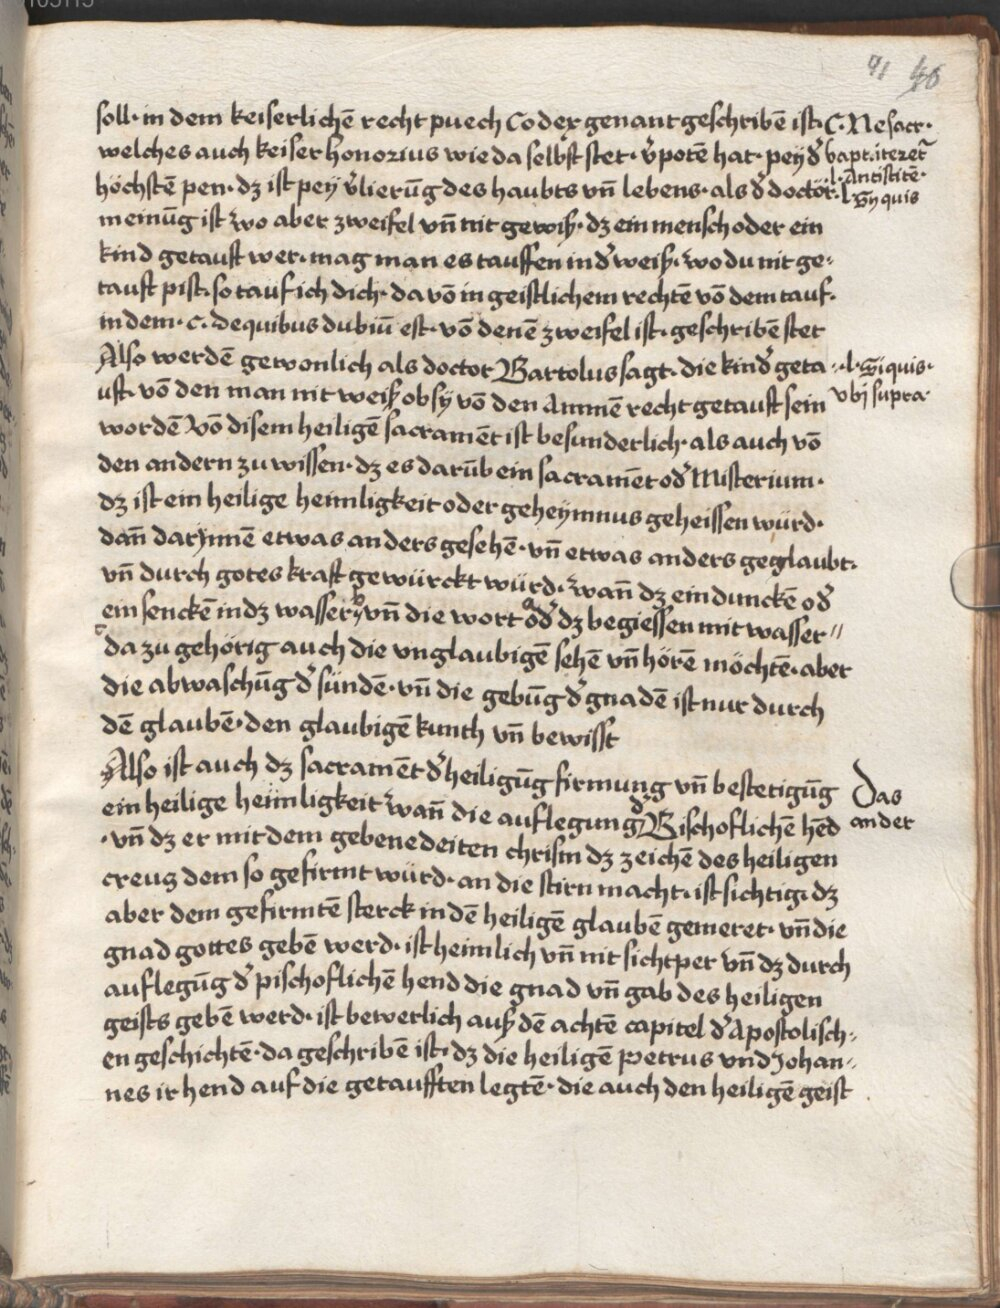 91 46
soll· in dem keiserlichē recht puech Codex genant geschribē ist· C. Ne sacr·
welches auch keiser honorius wie da selbst stet· v̄potē hat· pey d̄ bapt. iteret̄
höchstē pen· dz ist pey v̄lierūg des haubts vn̄ lebens· als d̄ doctor· l· Antistitē·
meinūg ist wo aber zweifel vn̄ nit gewiß· dz ein mensch oder ein l· Sy quis
kind getauft wer· mag man es tauffen in d̄ weiß· wo du nit ge-
tauft pist· so tauf ich dich· da vō in geistlichem rechtē vō dem tauf·
in dem· c· de quibus dubiū est· vō denē zweifel ist· geschribē stet
Also werdē gewonlich als doctor Bartolus sagt· die kind̄ geta- ·l· Si quis·
uft· vō den man nit weiß ob sy vō den Ammē recht getauft sein vbj supra·
wordē Vō disem heiligē sacramēt ist besunderlich· als auch vō
den andern zu wissen· dz es darūb ein sacramēt od̄ Misterium·
dz ist ein heilige heimligkeit oder geheymnus geheissen würd·
dan̄ darynnē etwas anders gesehē· vn̄ etwas anders geglaubt·
vn̄ durch gotes kraft gewürckt würd· wan̄ dz ein dunckē od̄
ein senckē in dz wasser vn̄ die wort od̄ dz begiessen mit wasser //
da zu gehörig auch die vnglaubigē sehē vn̄ hörē möchtē· aber
die abwaschūg d̄ sündē· vn̄ die gebūg d̄ gnadē ist nur durch
dē glaubē· den glaubigē kunth vn̄ bewisst
Also ist auch dz sacramēt d̄ heiligūg firmung vn̄ bestetigūg Das
ein heilige heimligkeit wan̄ die auflegung d̄ Bischoflichē hēd ander
·vn̄ dz er mit dem gebenedeiten chrism dz zeichē des heiligen
creutz dem so gefirmt würd· an die stirn macht· ist sichtig· dz
aber dem gefirmtē sterck in dē heiligē glaubē gemeret· vn̄ die
gnad gottes gebē werd· ist heimlich vn̄ nit sichtper vn̄ dz durch
auflegūg d̄ pischoflichē hend die gnad vn̄ gab des heiligen
geists gebē werd· ist bewerlich auß dē achtē capitel d̄ Apostolisch-
en geschichtē· da geschribē ist· dz die heiligē Petrus vnd Johan-
nes ir hend auf die getaufften legtē· die auch den heiligē geist